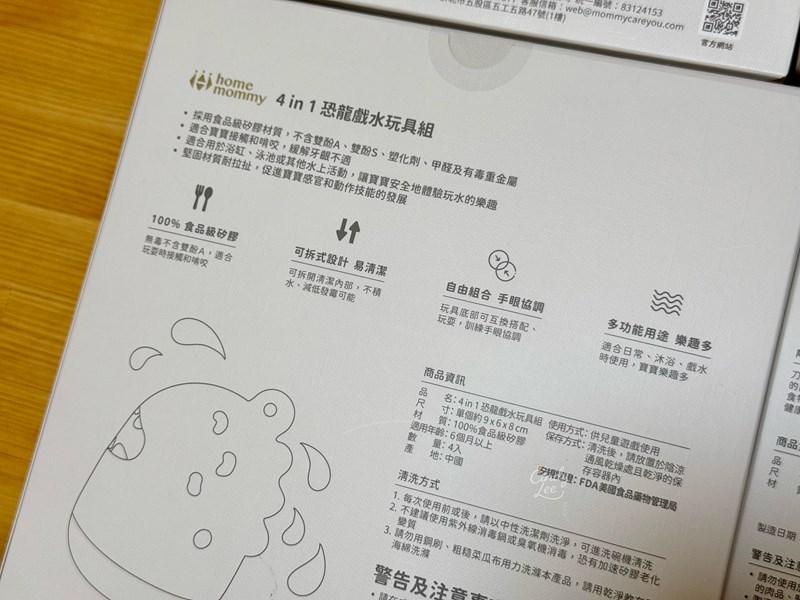 統一編號：83124153
五股區五工五路47號(1樓)
客服信箱：web@mommycareyou.com
官方網站
home
mommy
4 in 1 恐龍戲水玩具組
• 採用食品級矽膠材質，不含雙酚A、雙酚S、塑化劑、甲醛及有毒重金屬
• 適合寶寶接觸和啃咬，緩解牙齦不適
• 適合用於浴缸、泳池或其他水上活動，讓寶寶安全地體驗玩水的樂趣
• 堅固材質耐拉扯，促進寶寶感官和動作技能的發展
100% 食品級矽膠
無毒不含雙酚A，適合
玩耍時接觸和啃咬
可拆式設計 易清潔
可拆開清潔內部，不積
水、減低發霉可能
自由組合 手眼協調
玩具底部可互換搭配、
玩耍，訓練手眼協調
多功能用途 樂趣多
適合日常、沐浴、戲水
時使用，寶寶樂趣多
商品資訊
品 名：4 in 1 恐龍戲水玩具組
尺 寸：單個約 9 x 6 x 8 cm
材 質：100%食品級矽膠
適用年齡：6個月以上
數 量：4入
產 地：中國
使用方式：供兒童遊戲使用
保存方式：清洗後，請放置於陰涼
通風乾燥處且乾淨的保
存容器內
安規認證：FDA美國食品藥物管理局
清洗方式
1. 每次使用前或後，請以中性洗潔劑洗淨，可進洗碗機清洗
2. 不建議使用紫外線消毒鍋或臭氧機消毒，恐有加速矽膠老化
變質
3. 請勿用鋼刷、粗糙菜瓜布用力洗滌本產品，請用乾淨軟
海綿洗滌
警告及注意事
商品
品
尺
材
製造日期
警告及注
• 請勿使用
的肉品、